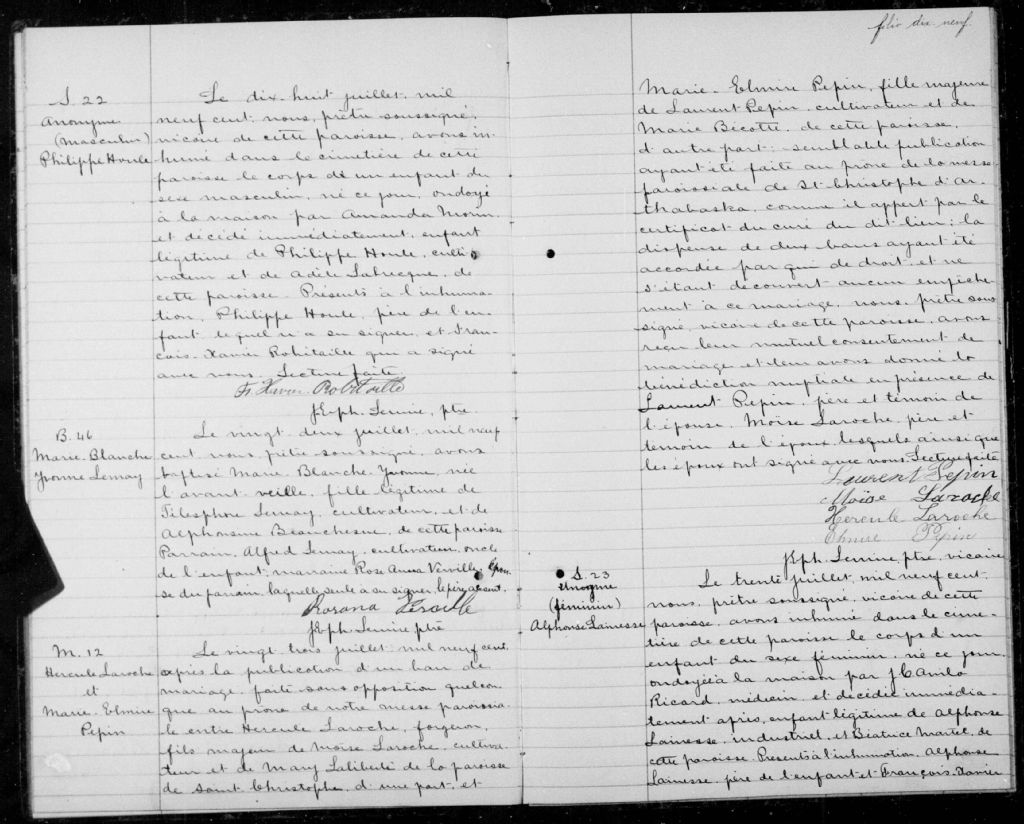 folio dix-neuf.
S. 22
Anonyme
(Masculin)
Philippe Houle
Le dix-huit juillet, mil
neuf cent, nous, prêtre soussigné,
vicaire de cette paroisse, avons in-
humé dans le cimetière de cette
paroisse le corps d'un enfant du
sexe masculin, né ce jour, ondoyé
à la maison par Amanda Morin
et décédé immédiatement, enfant
légitime de Philippe Houle, culti-
vateur et de Adèle Labrecque, de
cette paroisse. Présents à l'inhuma-
tion, Philippe Houle, père de l'en-
fant lequel n'a su signer, et Fran-
çois-Xavier Robitaille qui a signé
avec nous. Lecture faite
Fs Xavier Robitaille
Jph. Lemire, ptre.
B. 46
Marie-Blanche
Yvonne Lemay
Le vingt-deux juillet, mil neuf
cent, nous, prêtre soussigné, avons
baptisé Marie-Blanche-Yvonne, née
l'avant-veille, fille légitime de
Télesphore Lemay, cultivateur, et de
Alphonsine Beauchesne, de cette paroisse.
Parrain, Alfred Lemay, cultivateur, oncle
de l'enfant, marraine Rose Anna Verville, épou-
se du parrain, laquelle seule a su signer, le père absent.
Rosana Verville
Jph. Lemire ptre
M. 12
Hercule Laroche
et
Marie-Elmire
Pepin
Le vingt-trois juillet, mil neuf cent,
après la publication d'un ban de
mariage, faite sans opposition quelcon-
que au prone de notre messe paroissia-
le entre Hercule Laroche, forgeron,
fils majeur de Moïse Laroche, cultiva-
teur et de Mary Laliberté de la paroisse
de Saint Christophe, d'une part, et
Marie-Elmire Pepin, fille majeure
de Laurent Pepin, cultivateur et de
Marie Bécotte, de cette paroisse,
d'autre part; semblable publication
ayant été faite au prone de la messe
paroissiale de St-Christophe d'Ar-
thabaska, comme il appert par le
certificat du curé du dit lieu; la
dispense de deux bans ayant été
accordée par qui de droit, et ne
s'étant découvert aucun empêche-
ment à ce mariage, nous, prêtre sous-
signé, vicaire de cette paroisse, avons
reçu leur mutuel consentement de
mariage et leur avons donné la
bénédiction nuptiale en présence de
Laurent Pepin, père et témoin de
l'épouse, Moïse Laroche, père et
témoin de l'époux lesquels ainsi que
les époux ont signé avec nous. Lecture faite
Laurent Pepin
Moïse Laroche
Hercule Laroche
Elmire Pepin
Jph. Lemire ptre, vicaire
S. 23
Anonyme
(féminin)
Alphonse Lainesse
Le trente juillet, mil neuf cent,
nous, prêtre soussigné, vicaire de cette
paroisse, avons inhumé dans le cime-
tière de cette paroisse le corps d'un
enfant du sexe féminin, né ce jour,
ondoyé à la maison par
Ricard, médecin, et décédé immédia-
tement après, enfant légitime de Alphonse
Lainesse, industriel, et Béatrice Martel, de
cette paroisse. Présents à l'inhumation, Alphonse
Lainesse, père de l'enfant et François-Xavier